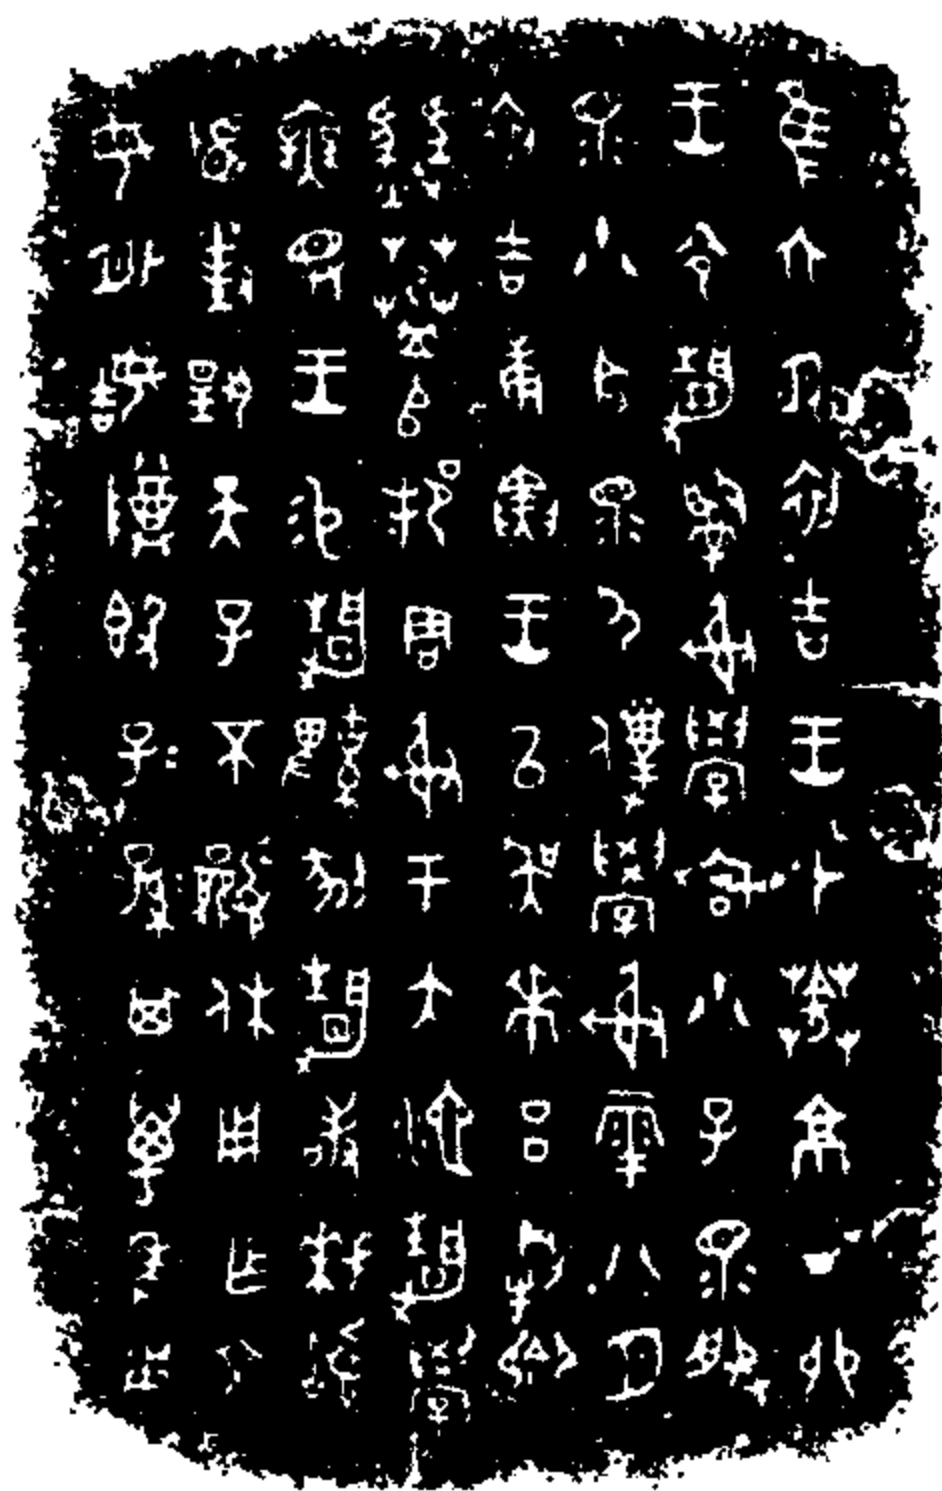 隹六月初吉王才葊京丁卯
王令靜𤔲射學宮小子眔服
眔小臣眔尸僕學射雩八月
初吉庚寅王以吳𠦪呂犅卿
豳䓊𠂤邦周射于大池靜學
無𢽟王易靜鞞剢靜敢拜𩒨
首對揚天子不顯休用乍文
母外姞尊簋子=孫=其萬年用